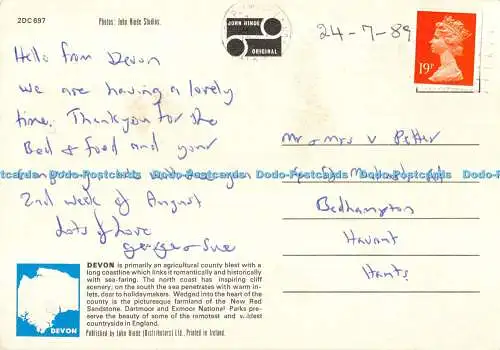 2DC697
Photos: John Hinde Studios.
JOHN HINDE
ORIGINAL
24-7-89
19P
Hello from Devon
we are having a lovely
time. Thankyou for the
Bed & food and your
Dodo-Postcards Dodo-Postcards Dodo-Postcards Dodo-Postcards
2nd week of August
Lots of Love
George & Sue
Mr & Mrs V Petter
Bedhampton
Havant
Hants.
DEVON is primarily an agricultural county blest with a
long coastline which links it romantically and historically
with sea-faring. The north coast has inspiring cliff
scenery; on the south the sea penetrates with warm in-
lets, dear to holidaymakers. Wedged into the heart of the
county is the picturesque farmland of the New Red
Sandstone. Dartmoor and Exmoor National Parks pre-
serve the beauty of some of the remotest and wildest
countryside in England.
Published by John Hinde (Distributors) Ltd., Printed in Ireland.
DEVON